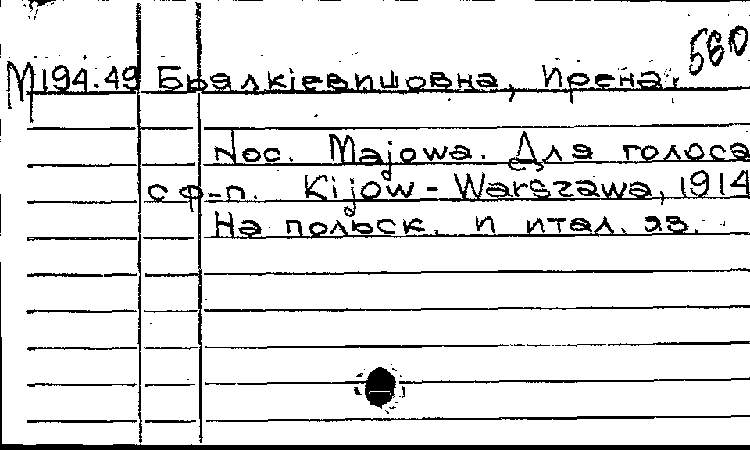 560
М194.49 Бялкiевишовна, Ирена.
Noc. Majowa. Для голоса
с ф-п. Kijow - Warszawa, 1914
На польск. и итал. яз.